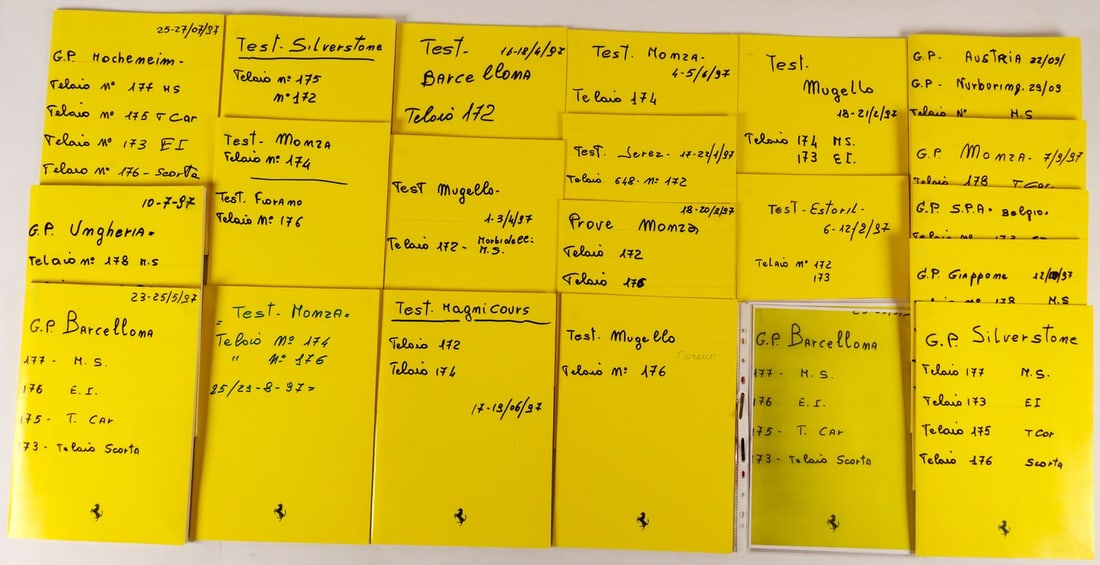 25-27/07/97
G.P. Hochemeim-
Telaio n° 177 MS
Telaio n° 175 T Car
Telaio N° 173 EI
Telaio N° 176 - Scorta
10-7-97
G.P. Ungheria.
Telaio n° 178 M.S
23-25/5/97
G.P. Barcellona
177 - M.S.
176 E.I.
175 - T. Car
173 - Telaio Scorta
Test - Silverstone
Telaio n° 175
n° 172
Test - Monza
Telaio n° 174
Test. Fiorano
Telaio N° 176
Test - Monza.
Telaio N° 174
" N° 176
25/29-8-97
Test- 16-18/4/97
Barcellona
Telaio 172
Test Mugello-
1-3/4/97
Telaio 172 - Morbidelli
M.S.
Test. Magnicours
Telaio 172
Telaio 174
17-19/06/97
Test. Monza-
4-5/6/97
Telaio 174
Test. Jerez - 17-22/1/97
Telaio 648 - n° 172
18-20/2/97
Prove Monza
Telaio 172
Telaio 176
Test. Mugello
Fiorano
Telaio N° 176
Test-
Mugello
18-21/2/97
Telaio 174 M.S.
173 E.I.
Test - Estoril-
6-12/2/97
Telaio N° 172
173
G.P. Barcellona
177 - M.S.
176 E.I.
75 - T. Car
73 - Telaio Scorta
G.P - Austria 22/09/
G.P - Nurburing. 29/09
Telaio N° M.S
G.P. Monza - 7/9/97
Telaio 178 T Car
G.P. S.P.A. Belgio.
G.P. Giappone 12/ /97
Telaio 178 M.S
G.P. Silverstone
Telaio 177 M.S.
Telaio 173 EI
Telaio 175 T Car
Telaio 176 Scorta